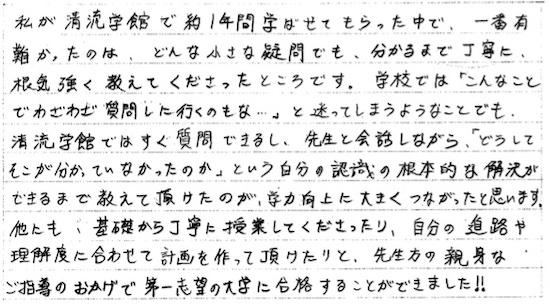 私が清流学館で約1年間学ばせてもらった中で、一番有
難かったのは、どんな小さな疑問でも、分かるまで丁寧に、
根気強く教えてくださったところです。学校では「こんなこと
でわざわざ質問しに行くのもな…」と迷ってしまうようなことでも、
清流学館ではすぐ質問できるし、先生と会話しながら、「どうして
そこが分かっていなかったのか」という自分の認識の根本的な解決が
できるまで教えて頂けたのが、学力向上に大きくつながったと思います。
他にも、基礎から丁寧に授業してくださったり、自分の進路や
理解度に合わせて計画を作って頂けたりと、先生方の親身な
ご指導のおかげで第一志望の大学に合格することができました!!